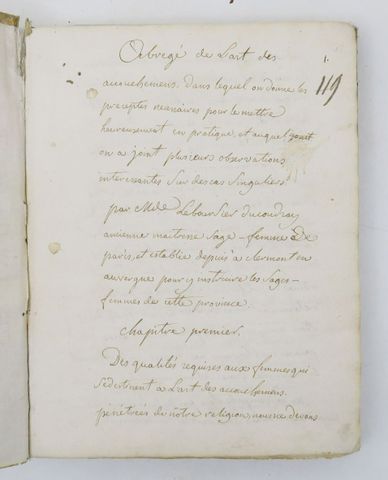 abregé de L'art des
1.
119
accouchemens. dans lequel on donne les
preceptes necessaires pour le mettre
heureusement en pratique, et auquel
on a joint plusieurs observations
interessantes sur des cas singuliers
par Mde Leboursier ducoudray
ancienne maitresse sage-femme De
paris, et etablie depuis à clermont en
auvergne pour y instruire les sages-
femmes de cette province.
chapitre premier.
Des qualités requises aux femmes qui
se destinent à L'art des accouchemens.
pénétrées de nôtre religion, nous ne devons